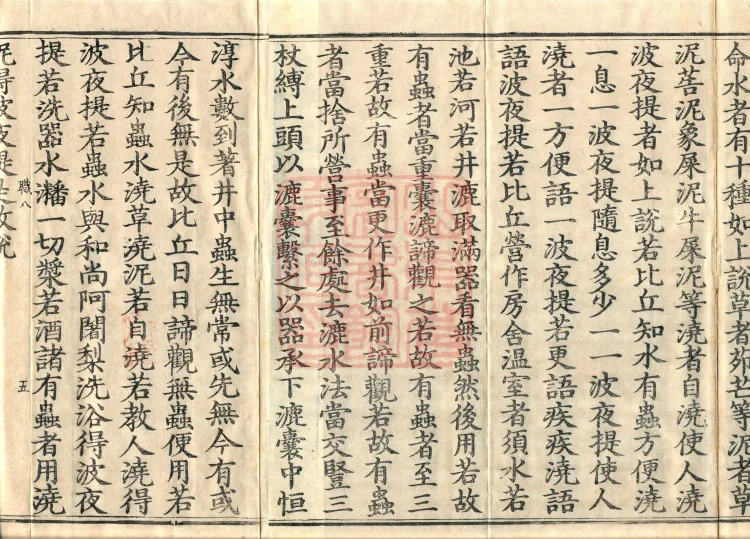 命水者有十種如上說草者茆芒等泥者草
泥菩泥象屎泥牛屎泥等澆者自澆使人澆
波夜提者如上說若比丘知水有蟲方便澆
一息一波夜提隨息多少一一波夜提使人
澆者一方便語一波夜提若更語疾疾澆語
語波夜提若比丘營作房舍溫室者須水若
池若河若井漉取滿器看無蟲然後用若故
有蟲者當重囊漉諦觀之若故有蟲者至三
重若故有蟲當更作井如前諦觀若故有蟲
者當捨所營事至餘處去漉水法當交豎三
杖縛上頭以漉囊繫之以器承下漉囊中恒
淳水數到著井中蟲生無常或先無今有或
今有後無是故比丘日日諦觀無蟲便用若
比丘知蟲水澆草澆泥若自澆若教人澆得
波夜提若蟲水與和尚阿闍梨洗浴得波夜
提若洗器水潘一切漿若酒諸有蟲者用澆
職八 五
泥得波夜提是故說